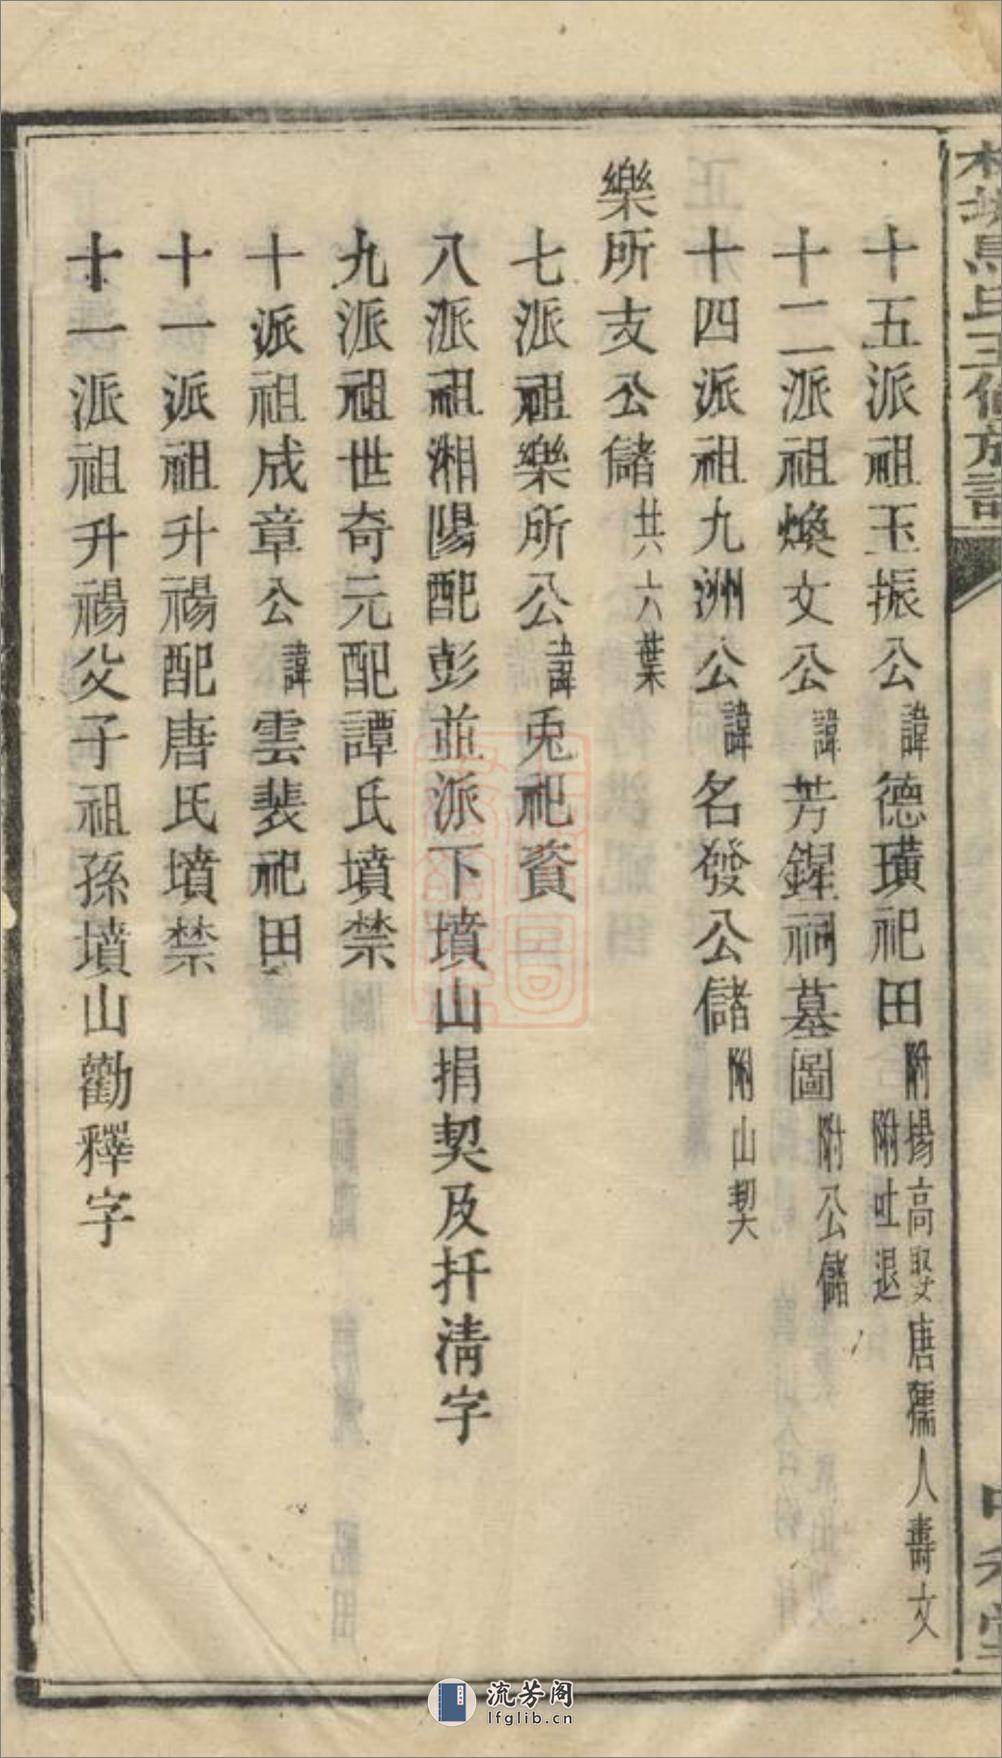 十五派祖玉振公諱德璜祀田附楊高娶唐孺人壽文附吐退
十二派祖煥文公諱芳鍟祠墓圖附公儲
十四派祖九洲公諱名發公儲附山契
樂所支公儲共六葉
七派祖樂所公諱兎祀資
八派祖湘陽配彭並派下墳山捐契及扦清字
九派祖世奇元配譚氏墳禁
十派祖成章公諱雲裴祀田
十一派祖升禓配唐氏墳禁
十一派祖升禓父子祖孫墳山勸釋字
流芳阁
lfglib.cn